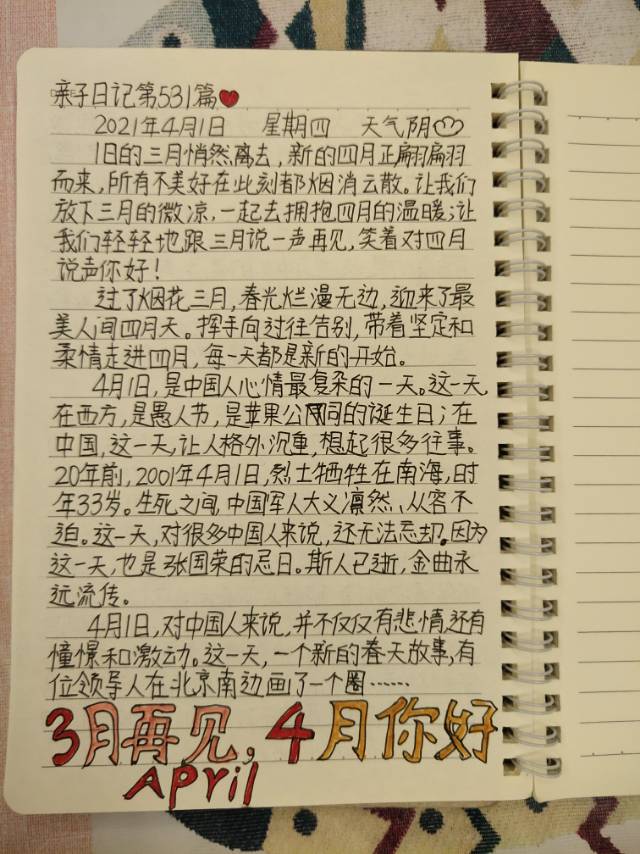 亲子日记第531篇
2021年4月1日 星期四 天气阴
旧的三月悄然离去,新的四月正翩翩
而来,所有不美好在此刻都烟消云散。让我们
放下三月的微凉,一起去拥抱四月的温暖;让
我们轻轻地跟三月说一声再见,笑着对四月
说声你好!
过了烟花三月,春光烂漫无边,迎来了最
美人间四月天。挥手向过往告别,带着坚定和
柔情走进四月,每一天都是新的开始。
4月1日,是中国人心情最复杂的一天。这一天,
在西方,是愚人节,是苹果公司的诞生日;在
中国,这一天,让人格外沉重,想起很多往事。
20年前,2001年4月1日,烈士牺牲在南海,时
年33岁。生死之间,中国军人大义凛然、从容不
迫。这一天,对很多中国人来说,还无法忘却。因为
这一天,也是张国荣的忌日。斯人已逝,金曲永
远流传。
4月1日,对中国人来说,并不仅仅有悲情,还有
憧憬和激动。这一天,一个新的春天故事,有
位领导人在北京南边画了一个圈……
3月再见,4月你好
APRil